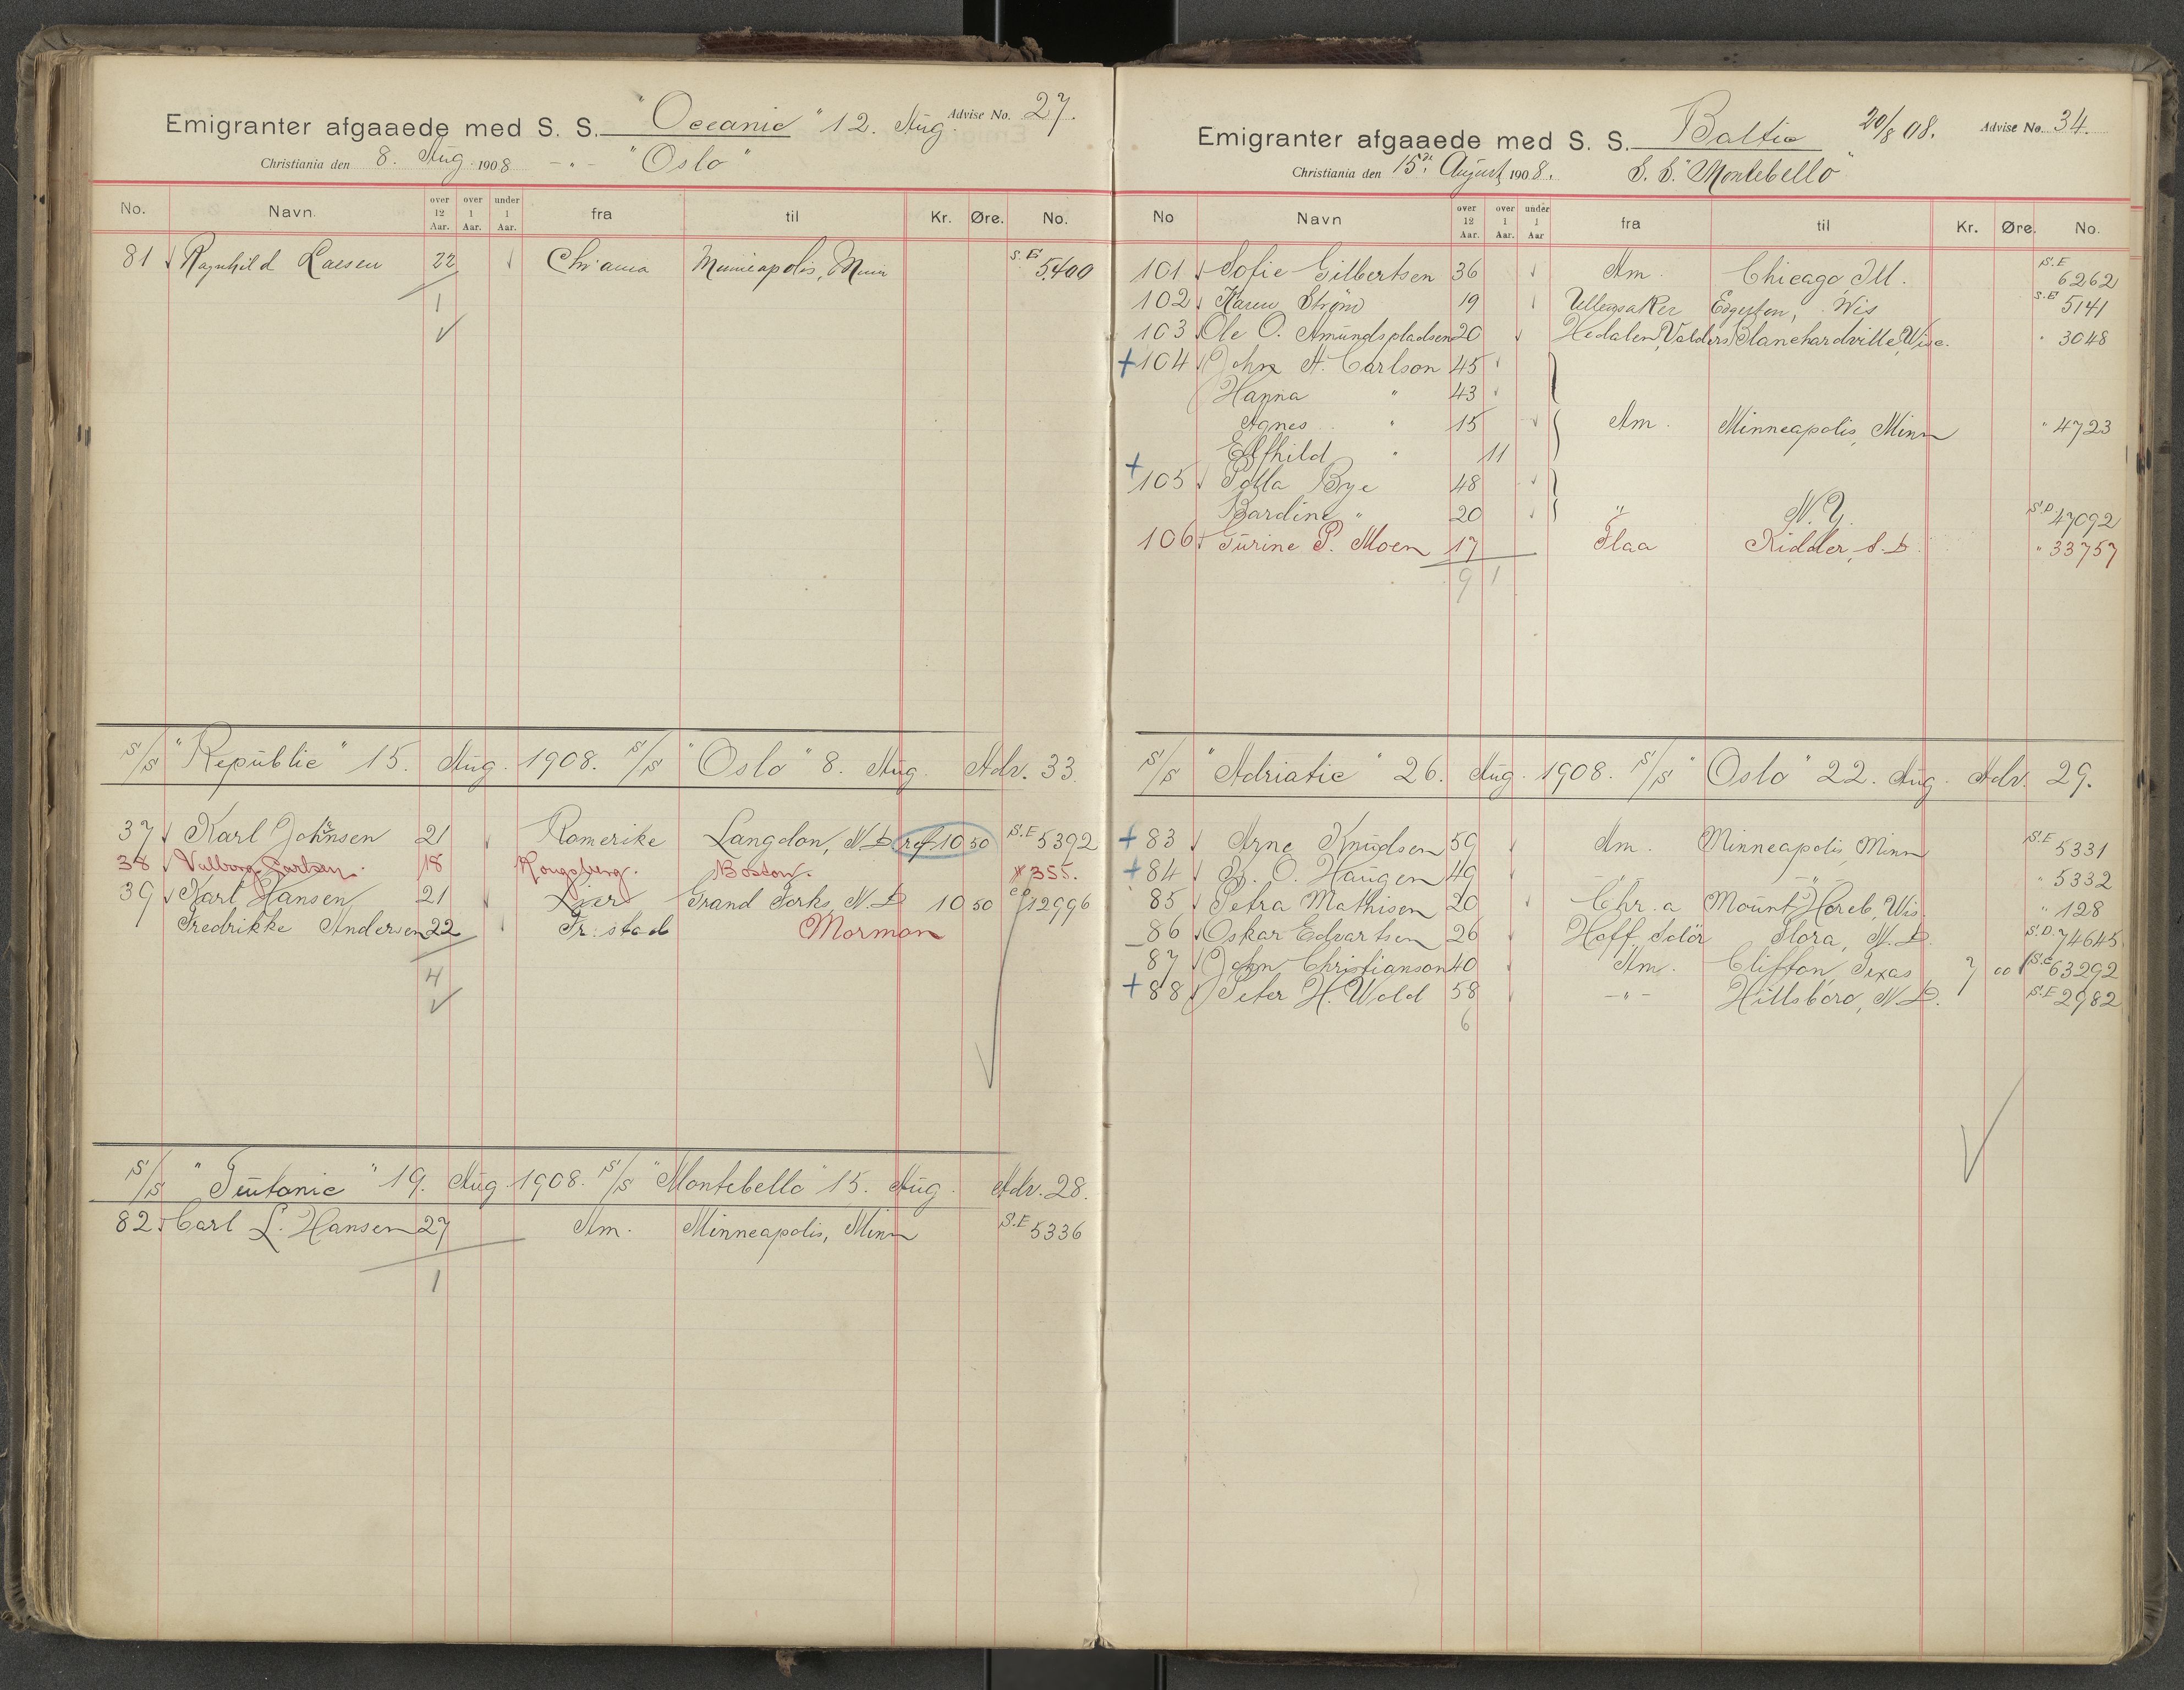 Emigranter afgaaede med S. S. "Oceanic" 12. Aug. Advise No. 27.
Christiania den 8. Aug. 1908 - " - "Oslo"
No. Navn over 12 Aar. over 1 Aar. under 1 Aar. fra til Kr. Øre. No.
81 Ragnhild Larsen 22 Chr'ania Minneapolis, Minn S.E 5400
1
S/S "Republic" 15. Aug. 1908. S/S "Oslo" 8. Aug. Adv. 33.
37 Karl Johnsen 21 Romerike Langdon, N.D. ref 10 50 S.E 5392
38 Valborg Carlsen. 18 Kongsberg. Boston. " 355.
39 Karl Hansen 21 Lier Grand Forks, N.D. 10 50 12996
Fredrikke Andersen 22 Fr.stad Mormon
4
S/S "Teutonic" 19. Aug. 1908. S/S "Montebello" 15. Aug. Adv. 28.
82 Carl L. Hansen 27 Am. Minneapolis, Minn S.E 5336
1
Emigranter afgaaede med S. S. Baltic 20/8 08. Advise No. 34.
Christiania den 15. August 1908. S.S. "Montebello"
No Navn over 12 Aar. over 1 Aar. under 1 Aar fra til Kr. Øre. No.
101 Sofie Gilbertsen 36 Am. Chicago Ill. S.E 6262
102 Karen Strøm 19 Ullensaker Edgerton, Wis S.E 5141
103 Ole O. Amundspladsen 20 Hedalen, Valders Blanchardville, Wisc. " 3048
+ 104 John A. Carlson 45
Hanna " 43
Agnes " 15 Am. Minneapolis, Minn " 4723
Elfhild " 11
+ 105 Polla Bye 48
Bardine " 20 " N.Y. S.D. 47092
106 Turine P. Moen 17 Flaa Kidder, S.D. " 33757
9 1
S/S "Adriatic" 26. Aug. 1908. S/S "Oslo" 22. Aug. Adv. 29.
+ 83 Arne Knudsen 59 Am. Minneapolis, Minn S.E 5331
+ 84 B. O. Haugen 49 - " - - " - " 5332
85 Petra Mathisen 20 Chr.a Mount Horeb, Wis " 128
86 Oskar Edvartsen 26 Hoff, Solör Flora, N.D. S.D. 74645
87 John Christianson 40 Am. Clifton, Texas 7 00 S.E 63292
+ 88 Peter H. Wold 58 - " - Hillsboro, N.D. S.E 2982
6